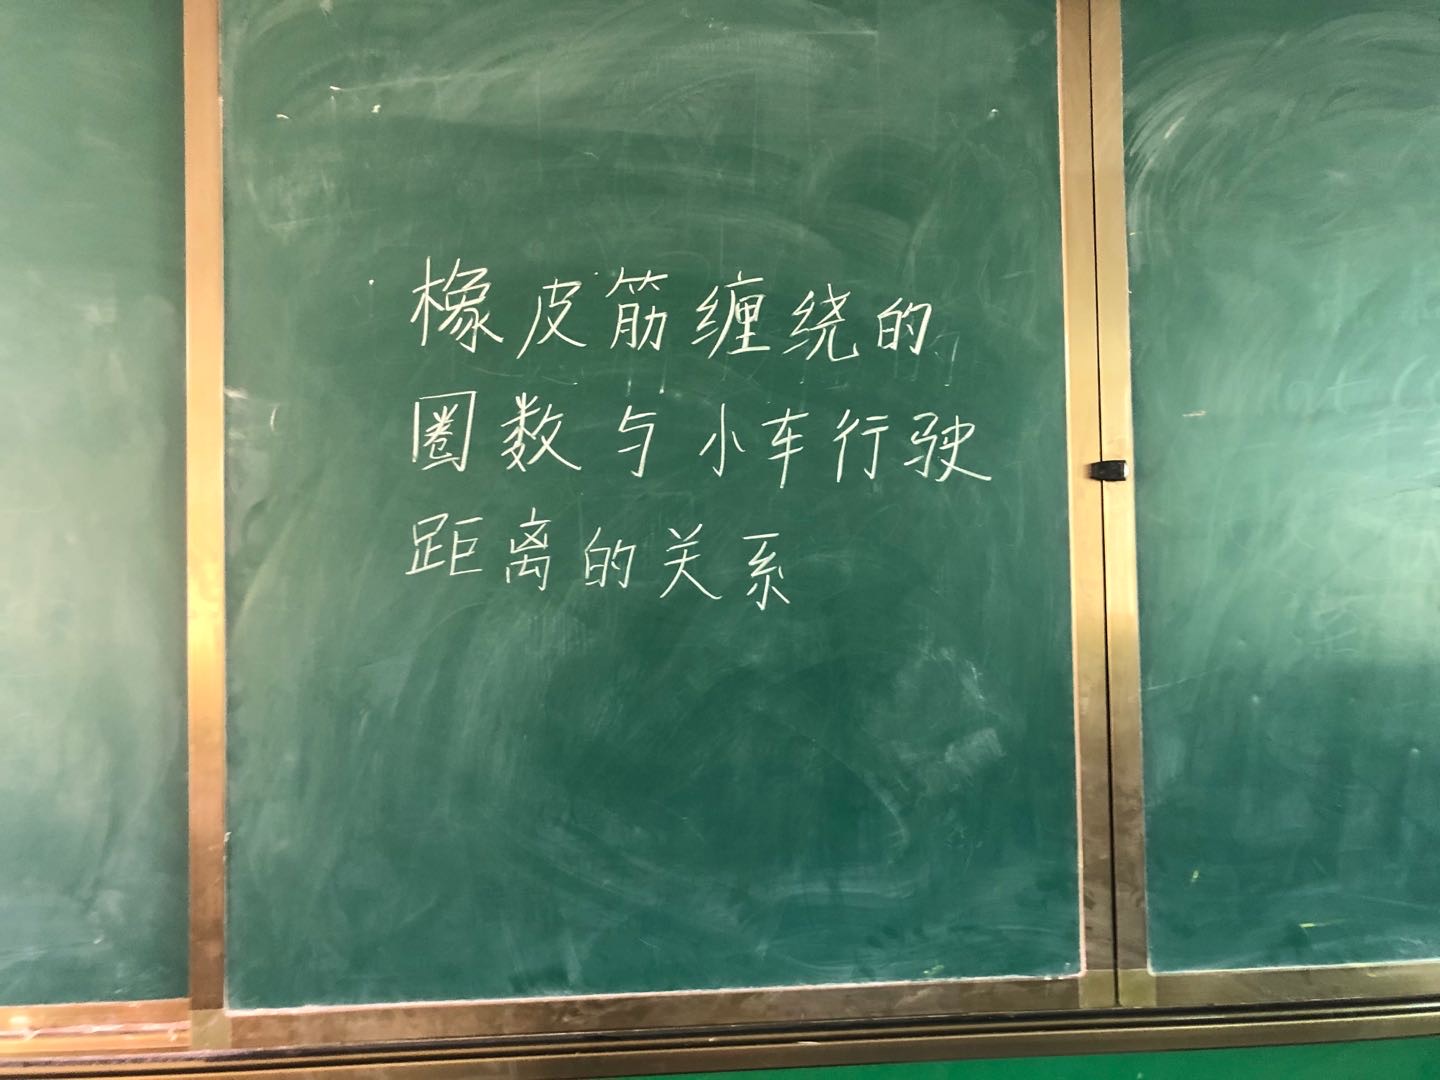 橡皮筋缠绕的
圈数与小车行驶
距离的关系